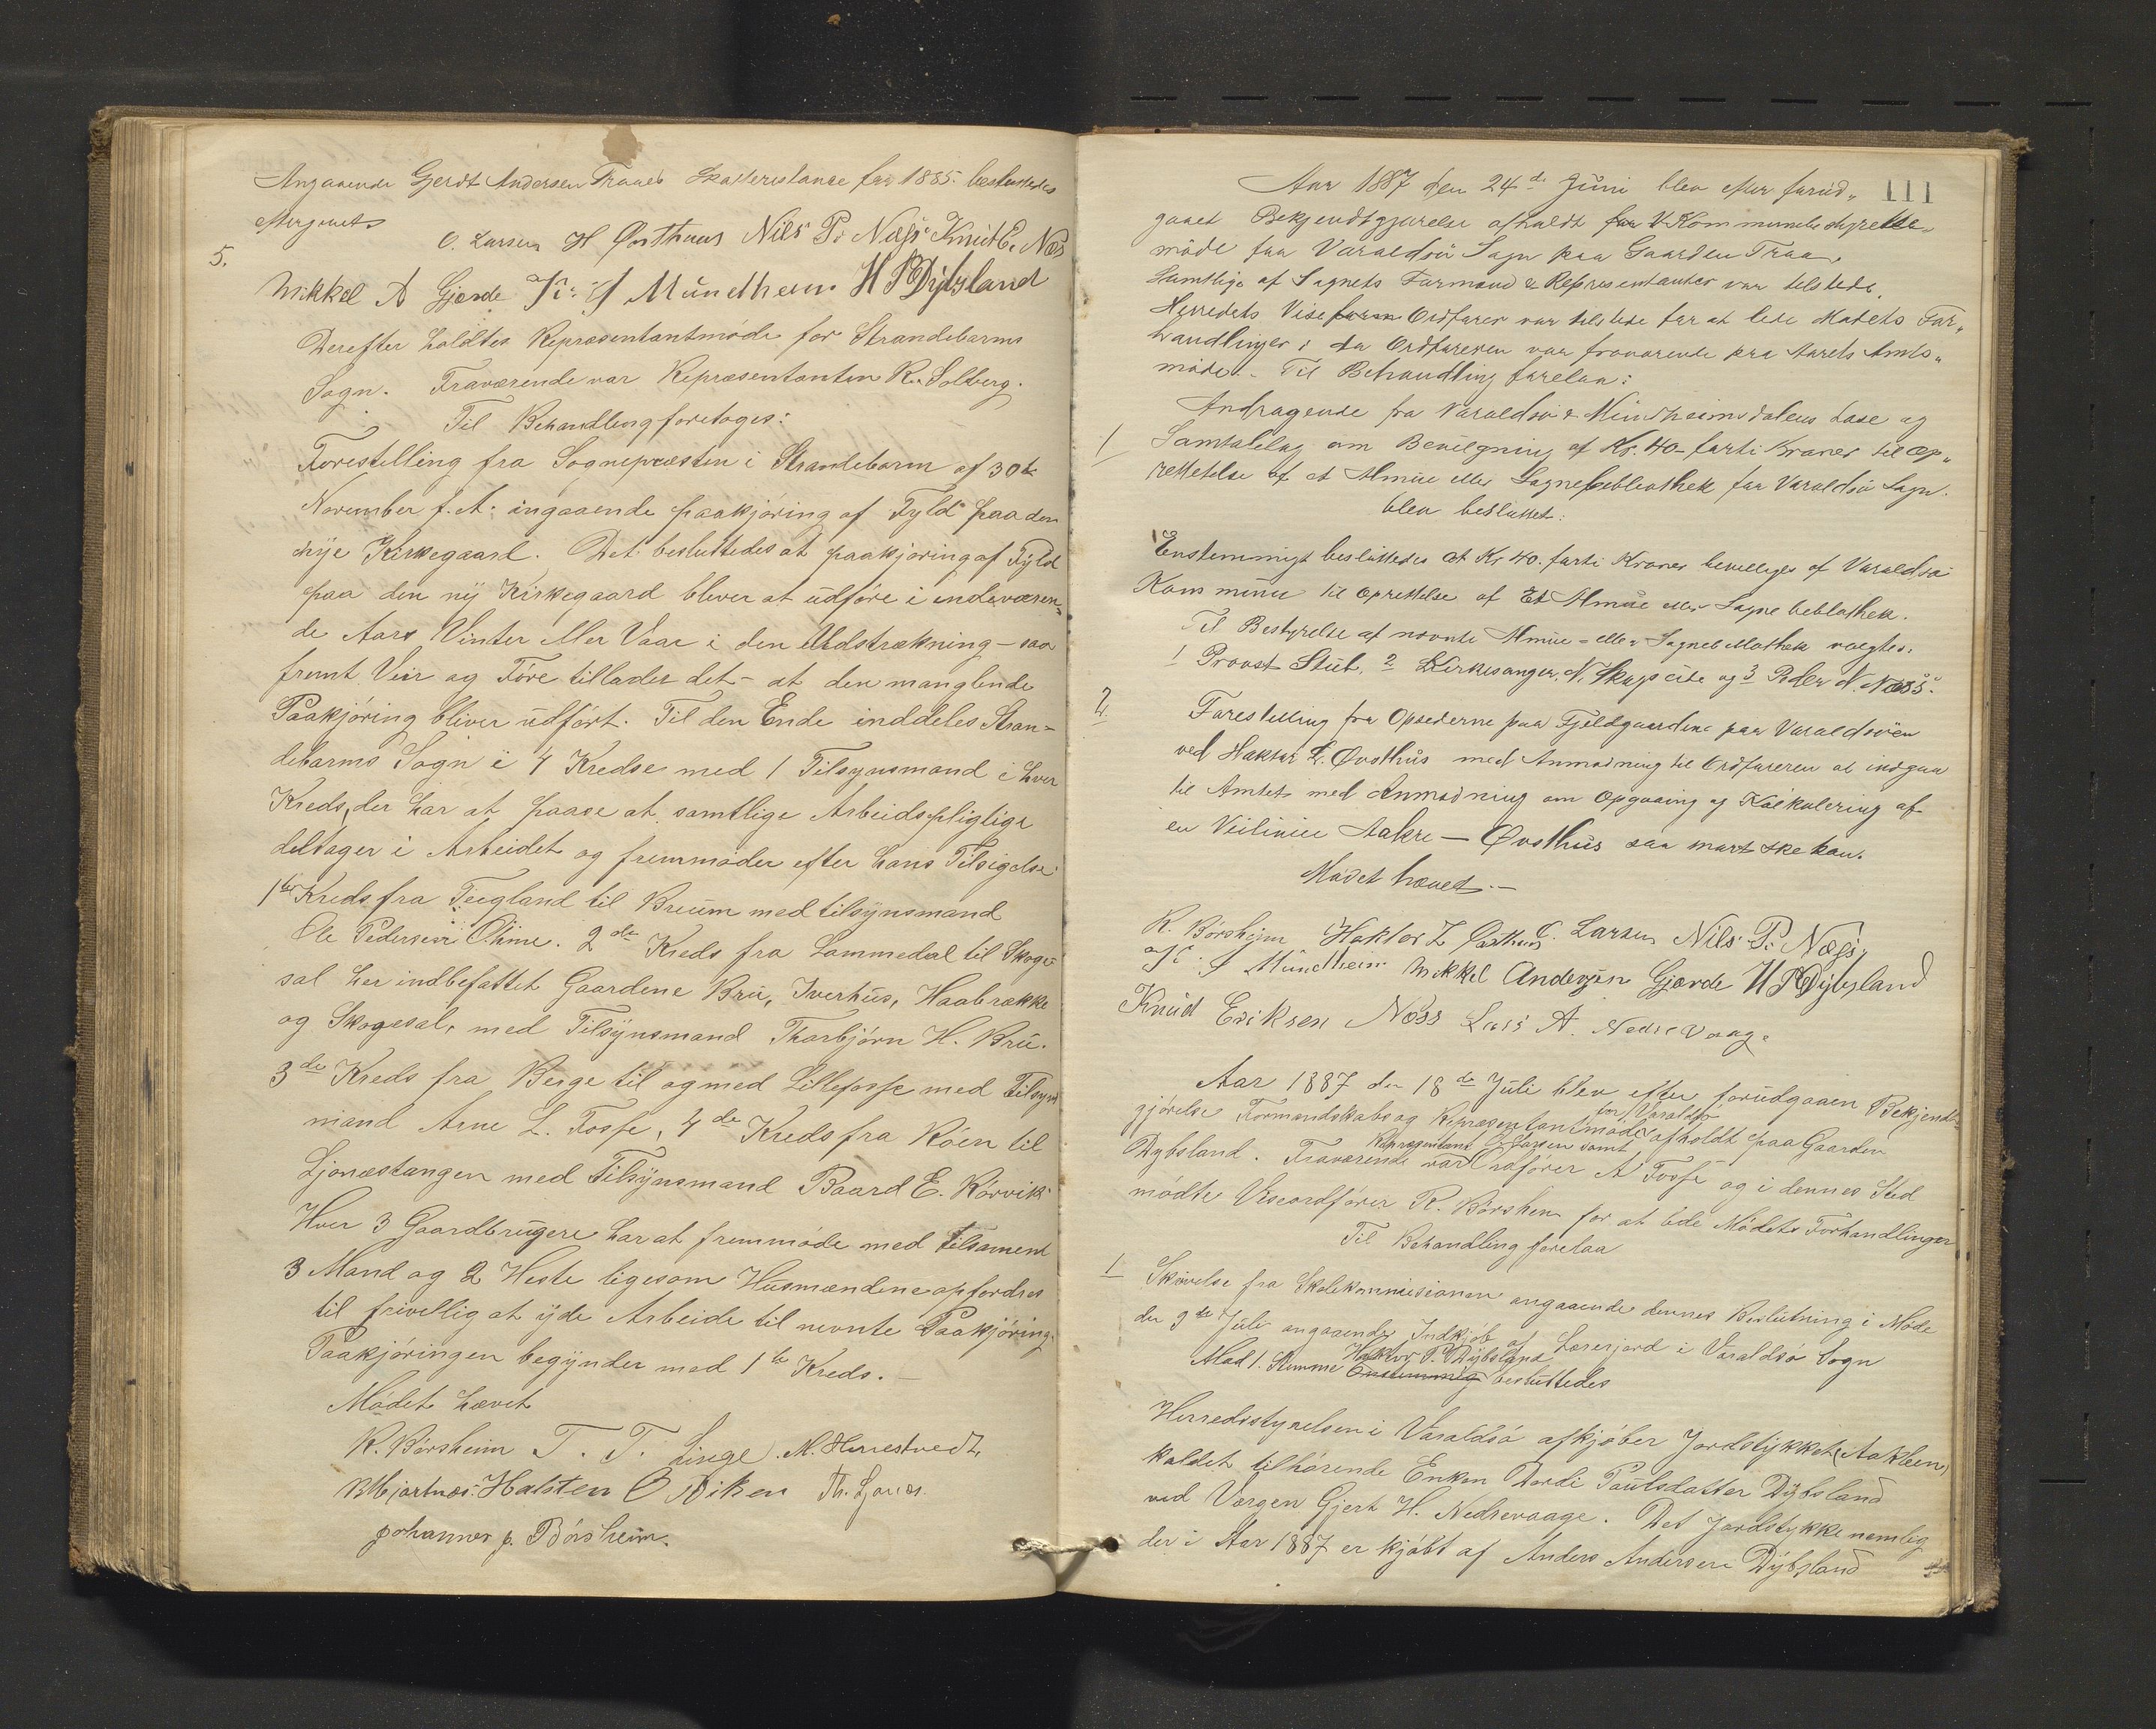 Angaaende Gjerdt Andersen Traaes Skatterestance for 1885. besluttedes
eftergivet.
5.
O. Larsen H Qvsthuus Nils P. Næss Knut E. Næs
Mikkel A Gjerde J. Mundheim H P Dybsland
Derefter holdtes Repræsentantmøde for Strandebarms
Sogn. Fraværende var Repræsentanten K. Solberg.
Til Behandling foretoges:
Forestilling fra Sognepræsten i Strandebarm af 30te
November f. A. angaaende paakjøring af Fyld paa den
nye Kirkegaard. Det besluttedes at paakjøring af Fyld
paa den ny Kirkegaard bliver at udføre i indeværen-
de Aars Vinter eller Vaar i den Udstrækning – saa
fremt Veir og Føre tillader det – at den manglende
Paakjøring bliver udført. Til den Ende inddeles Stran-
debarms Sogn i 4 Kredse med 1 Tilsynsmand i hver
Kreds, der har at paase at samtlige Arbeidspligtige
deltager i Arbeidet og fremmøder efter hans Tilsigelse.
1ste Kreds fra Teigland til Breum med tilsynsmand
Ole Pedersen Ohme. 2den Kreds fra Lammedal til Skoge-
sal her indbefattet Gaardene Bru, Iverhus, Haabrække
og Skogesal, med Tilsynsmand Thorbjørn H. Bru.
3de Kreds fra Berge til og med Lillefosse med Tilsyns
mand Arne L. Fosse, 4de Kreds fra Røen til
Ljonæstangen med Tilsynsmand Baard E. Kørvik.
Hver 3 Gaardbrugere har at fremmøde med tilsamen
3 Mand og 2 Heste ligesom Husmændene opfordres
til frivillig at yde Arbeide til nevnte Paakjøring.
Paakjøringen begynder med 1te Kreds. –
Mødet hævet
K. Børsheim T. T. Linge. M. Herrestvedt,
Halsten O Th. Ljones.
Johannes J. Børsheim.
111
Aar 1887 den 24de Juni blev efter forud„
gaaet Bekjendtgjørelse afholdt for V Kommunebestyrelse„
møde for Varaldsø Sogn paa Gaarden Traa,
Samtlige af Sognets Formænd & Representanter var tilstede.
Herredets Viseform Ordfører var tilstede for at lede Mødets For„
handlinger; da Ordføreren var fraværende paa Aarets Amts„
møde. – Til Behandling forelaa:
1
Andragende fra Varaldsø & Mundheimsdalens Læse og
Samtalelag om Bevilgning af Kr. 40 – forti Kroner til Op„
rettelse af et Almue eller Sognebibliothek for Varaldsø Sogn.
blev besluttet:
Enstemmigt besluttedes at Kr 40. forti Kroner bevilliges af Varaldsø
Kommune til Oprettelse af Et Almue eller Sognebibliothek.
Til Bestyrelse af nævnte Almue- eller Sognebibliothek valgtes:
1 Provst Stub, 2 Kirkesanger N. Skogseide og 3 Peder N. Næss.
2.
Forestilling fra Opsidderne paa Fjeldgaardene paa Varaldsøen
ved Haktor L. Øvsthus med Anmodning til Ordføreren at indgaa
til Amtet med Anmodning om Opgaaing og Kalkulering af
en Veilinie Aakre – Øvsthus saa snart ske kan.
Mødet hævet. –
K. Børsheim Haktor L Qvsthus O. Larsen Nils P. Næss,
J. Mundheim Mikkel Andersen Gjerde H P Dybsland
Knud Eriksen Næss Lars A. Nedre Vaage.
Aar 1887 den 18de Juli blev efter forudgaaen Bekjendt-
gjørelse Formandskabs og Repræsentantmøde for Varaldsø afholdt paa Gaarden
Dybsland. Fraværende var Repræsentant O. Larsen samt Ordfører A Fosse og i dennes Sted
mødte Viceordfører K. Børsheim for at lede Mødets Forhandlinger
Til Behandling forelaa
1
Skrivelse fra Skolekommisionen angaaende dennes Beslutning i Møde
den 9de Juli angaaende Indkjøb af Lærerjord i Varaldsø Sogn
Mod 1. Stemme Haktor P. Dybsland Enstemmig besluttedes
Herredsstyrelsen i Varaldsø afkjøber Jordstykket (Aakleen)
kaldet tilhørende Enken Dordi Paulsdatter Dybsland
ved Værgen Gjert H. Nedrevaage. Det Jordstykke nemlig
der i Aar 1887 er kjøbt af Anders Andersen Dybsland